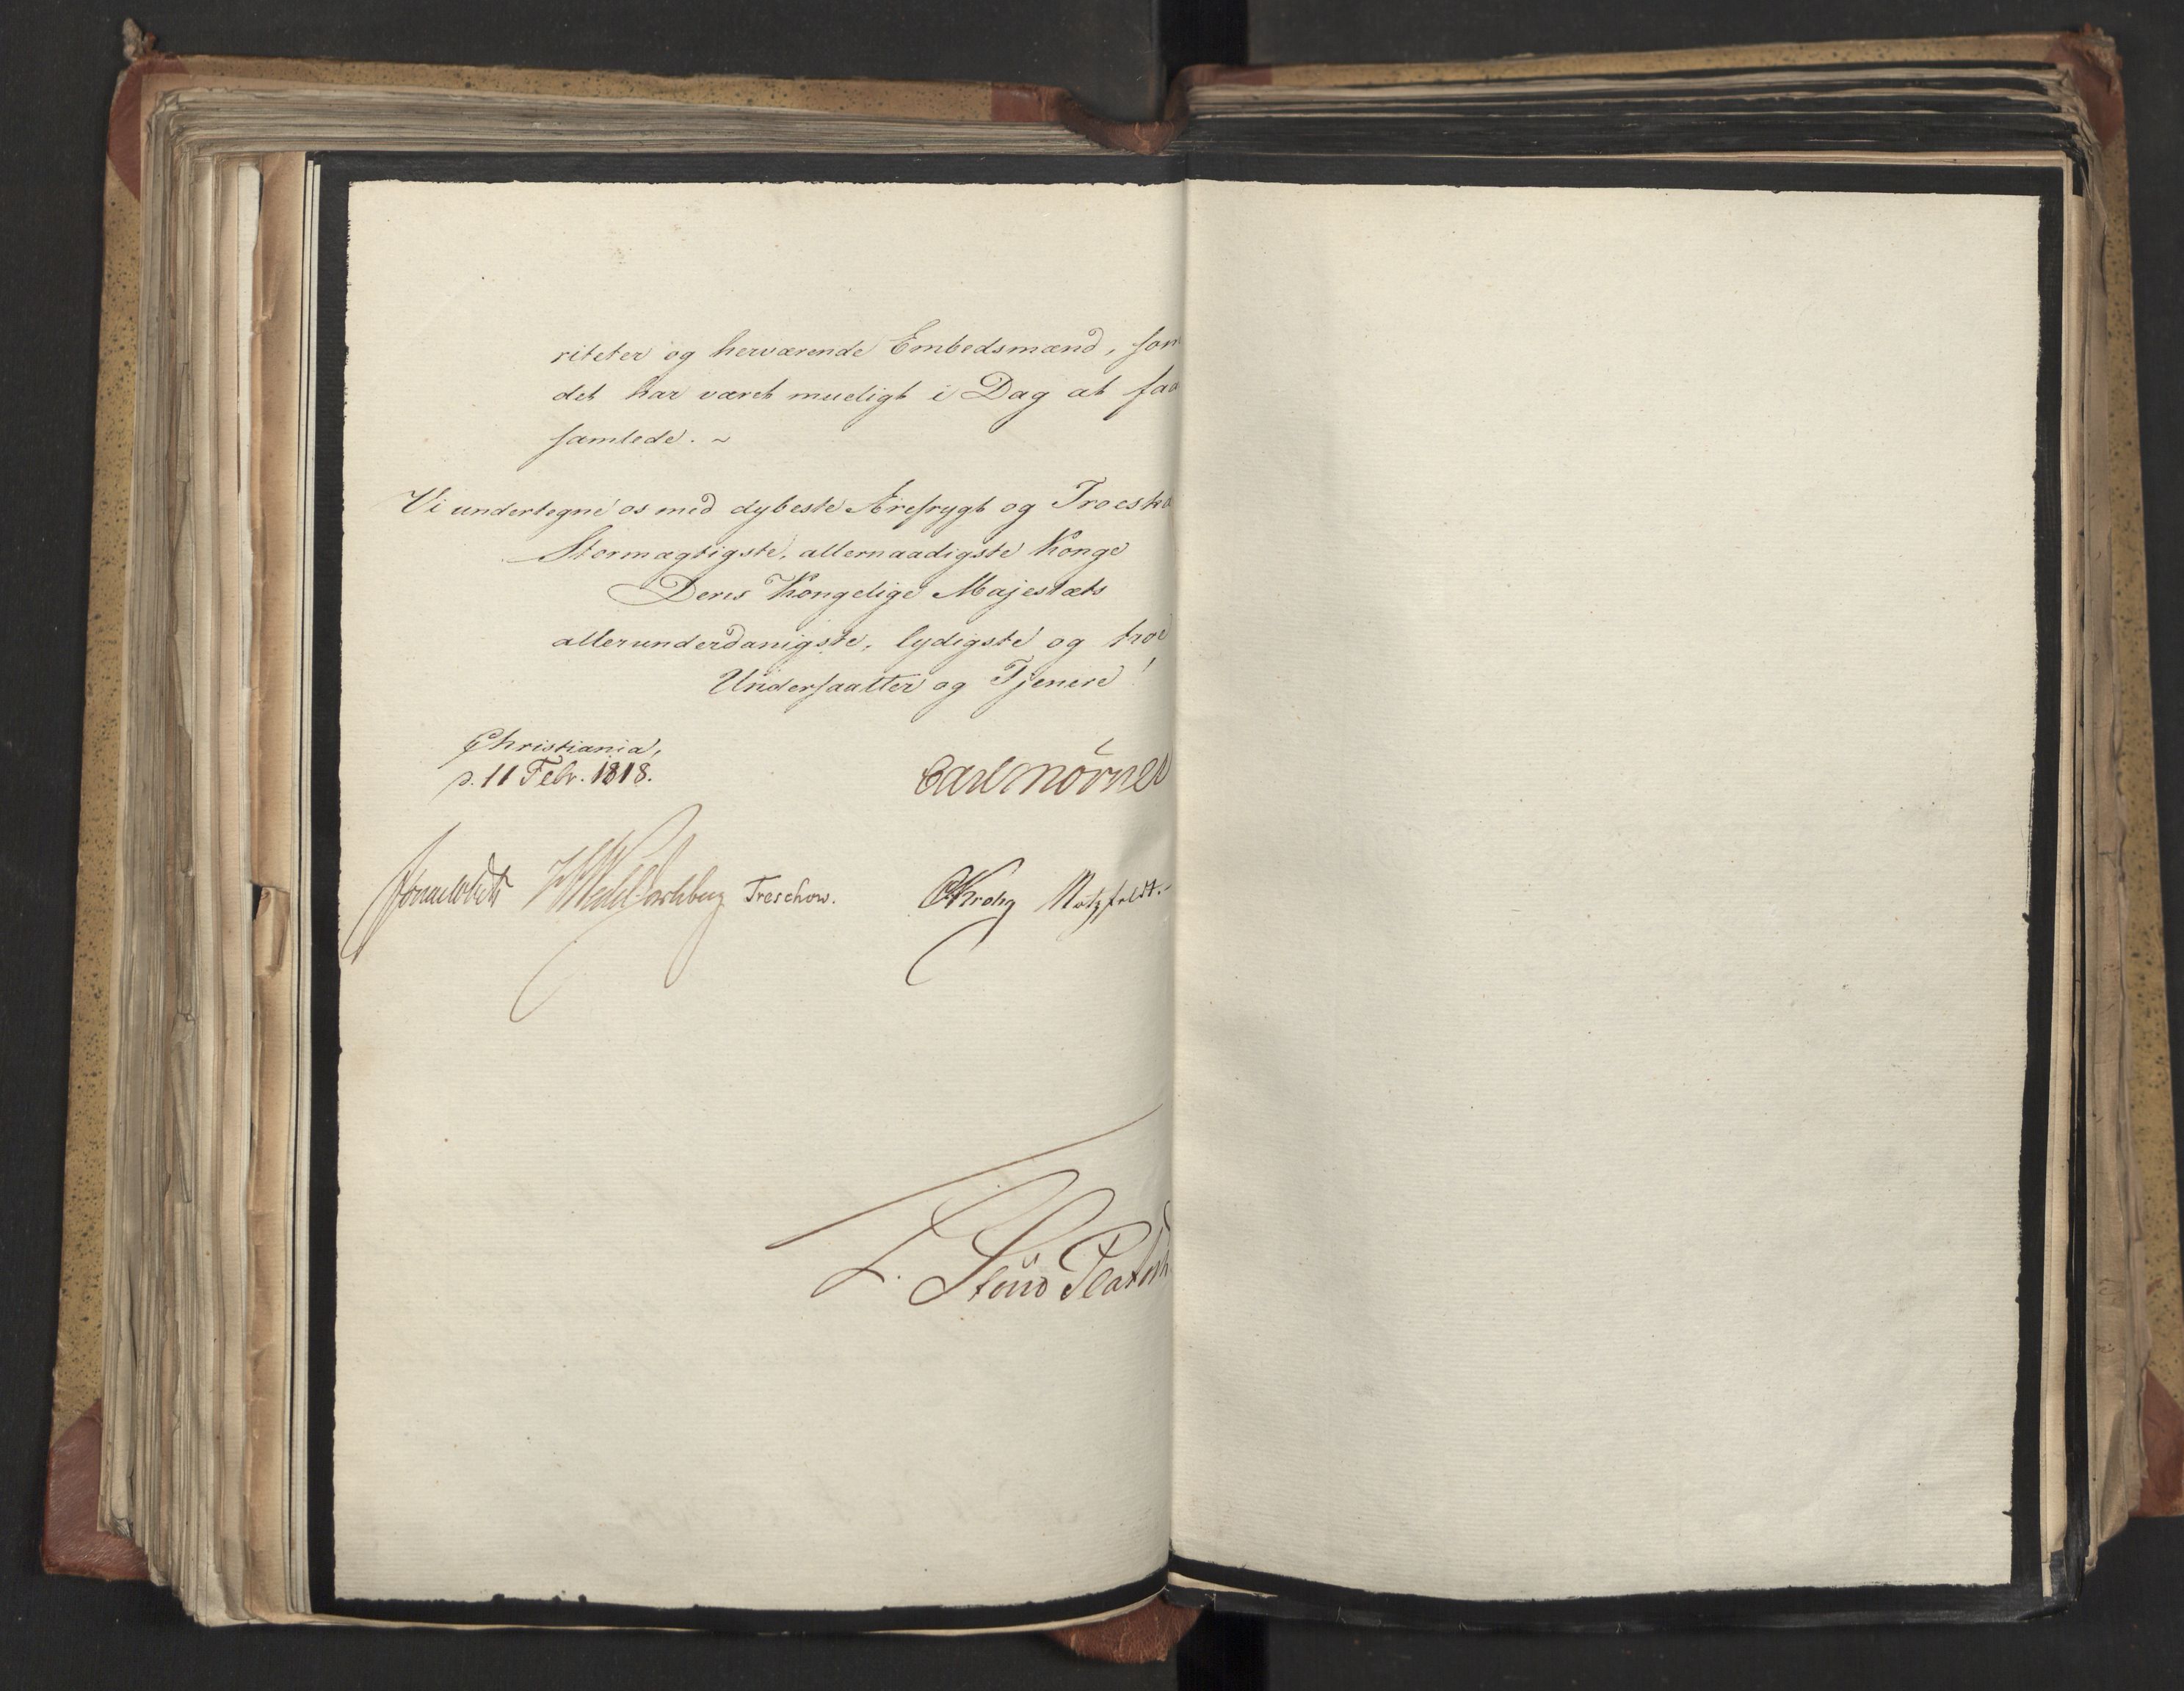 riteter og herværende Embedsmænd, som
det har været mueligt i Dag at faa
samlede. ~
Vi undertegne os med dybeste Ærefrygt og Troeska
Stormægtigste, allernaadigste Konge
Deres Kongelige Majestæts
allerunderdanigste, lydigste og troe
Undersaatter og Tjenere!
Christiania,
d. 11 Febr. 1818.
Carl Mörner
Sommerhielm HWedel Jarlsberg Treschow. CKrohg Motzfeldt.